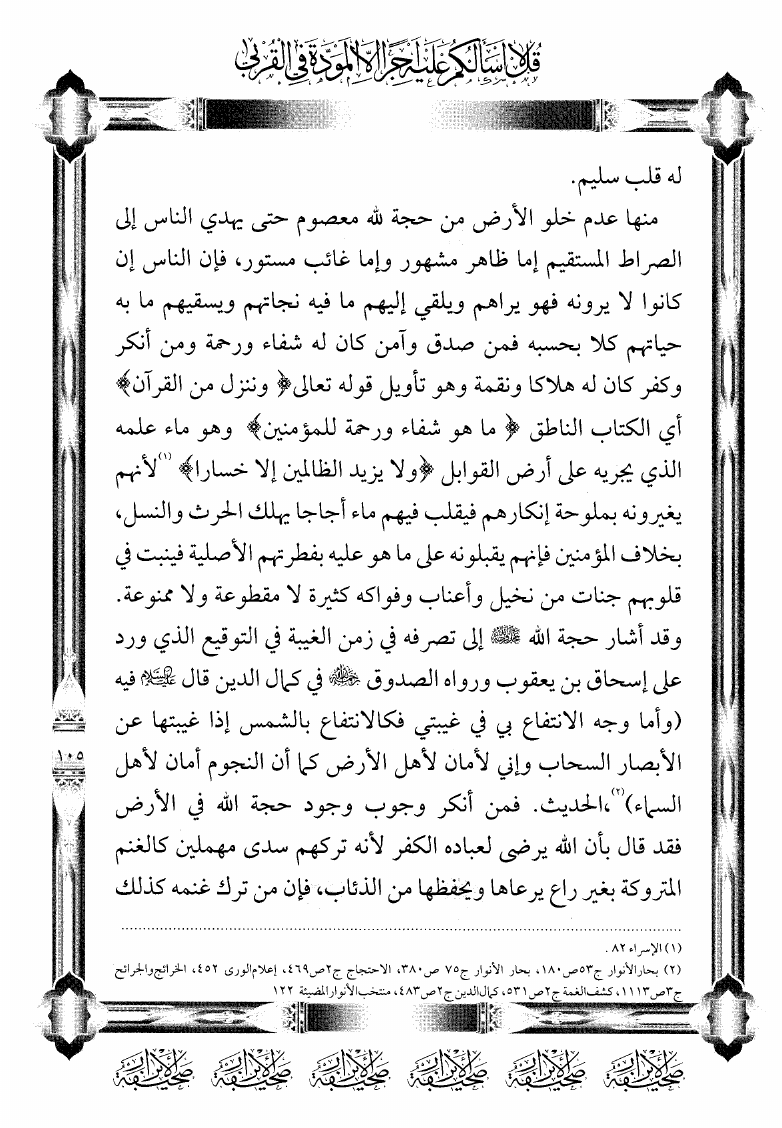 قل لا أسألكم عليه أجرا إلا المودة في القربى
له قلب سليم.
منها عدم خلو الأرض من حجة لله معصوم حتى يهدي الناس إلى
الصراط المستقيم إما ظاهر مشهور وإما غائب مستور، فإن الناس إن
كانوا لا يرونه فهو يراهم ويلقي إليهم ما فيه نجاتهم ويسقيهم ما به
حياتهم كلا بحسبه فمن صدق وآمن كان له شفاء ورحمة ومن أنكر
وكفر كان له هلاكا ونقمة وهو تأويل قوله تعالى﴿ وننزل من القرآن﴾
أي الكتاب الناطق ﴿ ما هو شفاء ورحمة للمؤمنين﴾ وهو ماء علمه
الذي يجريه على أرض القوابل ﴿ولا يزيد الظالمين إلا خسارا﴾ (١)لأنهم
يغيرونه بملوحة إنكارهم فيقلب فيهم ماء أجاجا يهلك الحرث والنسل،
بخلاف المؤمنين فإنهم يقبلونه على ما هو عليه بفطرتهم الأصلية فينبت في
قلوبهم جنات من نخيل وأعناب وفواكه كثيرة لا مقطوعة ولا ممنوعة.
وقد أشار حجة الله إلى تصرفه في زمن الغيبة في التوقيع الذي ورد
على إسحاق بن يعقوب ورواه الصدوق في كمال الدين قال فيه
(وأما وجه الانتفاع بي في غيبتي فكالانتفاع بالشمس إذا غيبتها عن
الأبصار السحاب وإني لأمان لأهل الأرض كما أن النجوم أمان لأهل
السماء)(٢)،الحديث. فمن أنكر وجوب وجود حجة الله في الأرض
فقد قال بأن الله يرضى لعباده الكفر لأنه تركهم سدى مهملين كالغنم
المتروكة بغير راع يرعاها ويحفظها من الذئاب، فإن من ترك غنمه كذلك
١٠٥
(١) الإسراء ٨٢ .
(٢) بحار الأنوار ج٥٣ص١٨٠، بحار الأنوار ج٧٥ ص٣٨٠، الاحتجاج ج٢ص٤٦٩، إعلام الورى ٤٥٢، الخرائج والجرائح
ج٣ص١١١٣، كشف الغمة ج٢ص٥٣١، كمال الدين ج٢ص٤٨٣، منتخب الأنوار المضيئة ١٢٢
صحيفة الأبرار صحيفة الأبرار صحيفة الأبرار صحيفة الأبرار صحيفة الأبرار صحيفة الأبرار